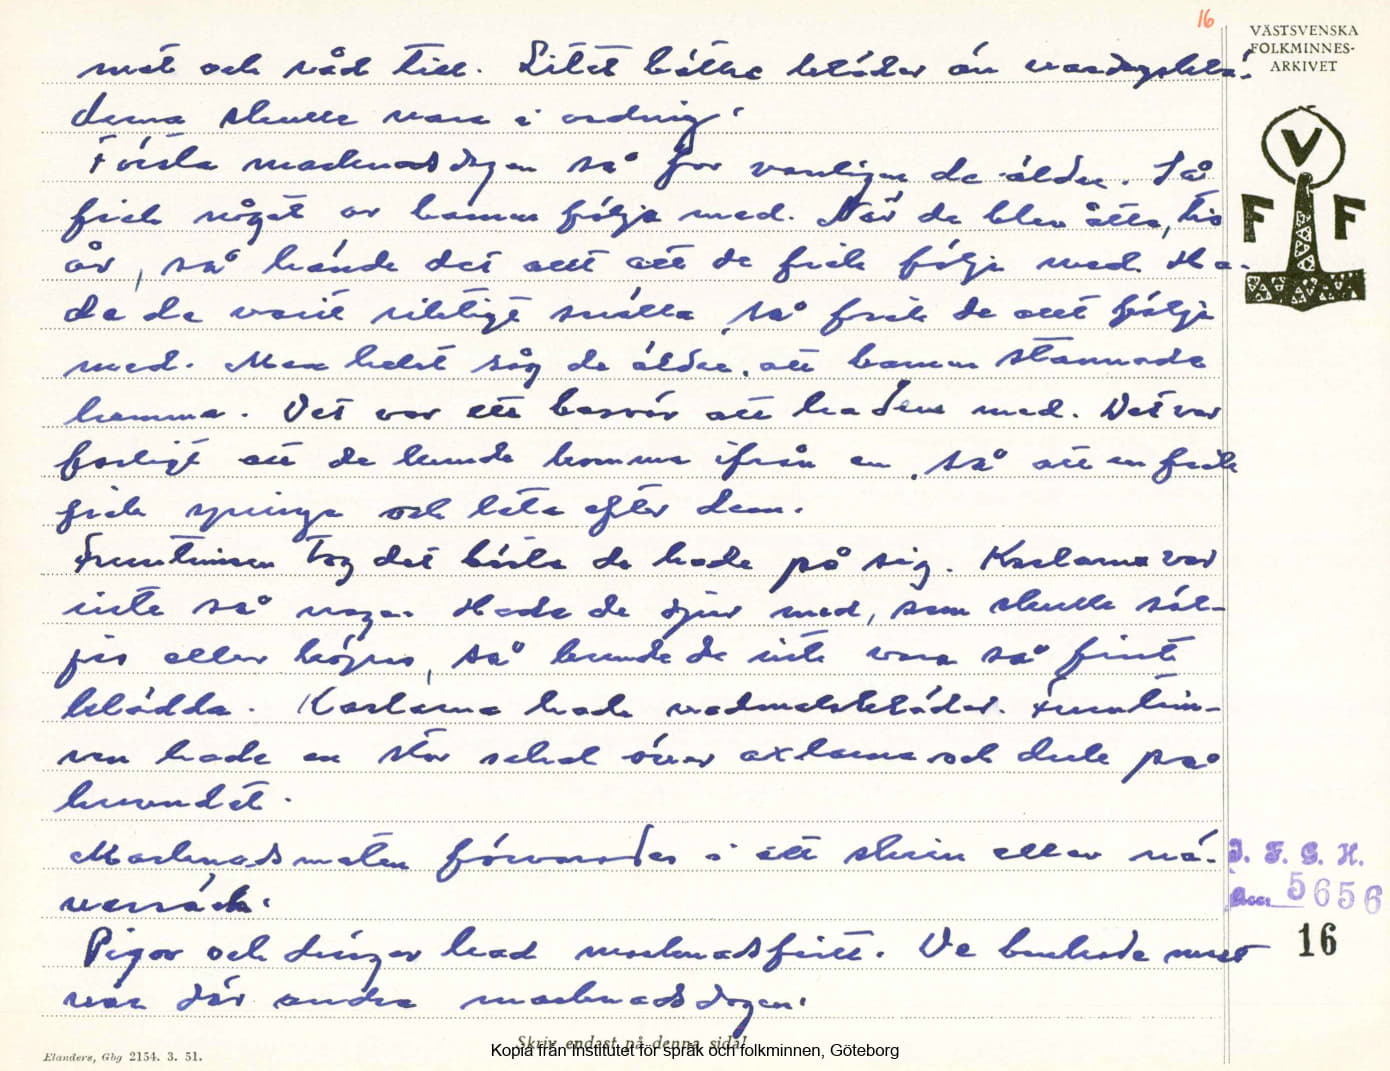 16
VÄSTSVENSKA
FOLKMINNES-
ARKIVET
V
F F
mat och råd till. Litet bättre kläder än vardagsklä-
derna skulle vara i ordnig.
Första marknadsdagen så for vanligen de äldre. Så
fick något av barnen följa med. När de blev åtta, tio
år, så hände det att att de fick följa med. Ha-
de de varit riktigt snälla, så fick de allt följa
med. Men helst såg de äldre, att barnen stannade
hemma. Det var ett besvär att ha dem med. Det var
farligt att de kunde komma ifrån en, så att en fick
fick springa och leta efter dem.
Fruntimren tog det bästa de hade på sig. Karlarna var
inte så noga. Hade de djur med, som skulle säl-
jas eller köpas, så kunde de inte vara så fint
klädda. Karlarna hade vadmalskläder. Fruntim-
ren hade en stor schal över axlarna och duk på
huvudet.
Marknadsmaten förvarades i ett skrin eller nä-
versäck.
Pigor och drängar had marknadsfritt. De brukade mest
vara där andra marknadsdagen.
I. F. G. H.
Acc. 5656
16
Skriv endast på denna sida!
Elanders, Gbg 2154. 3. 51.
Kopia från Institutet för språk och folkminnen, Göteborg